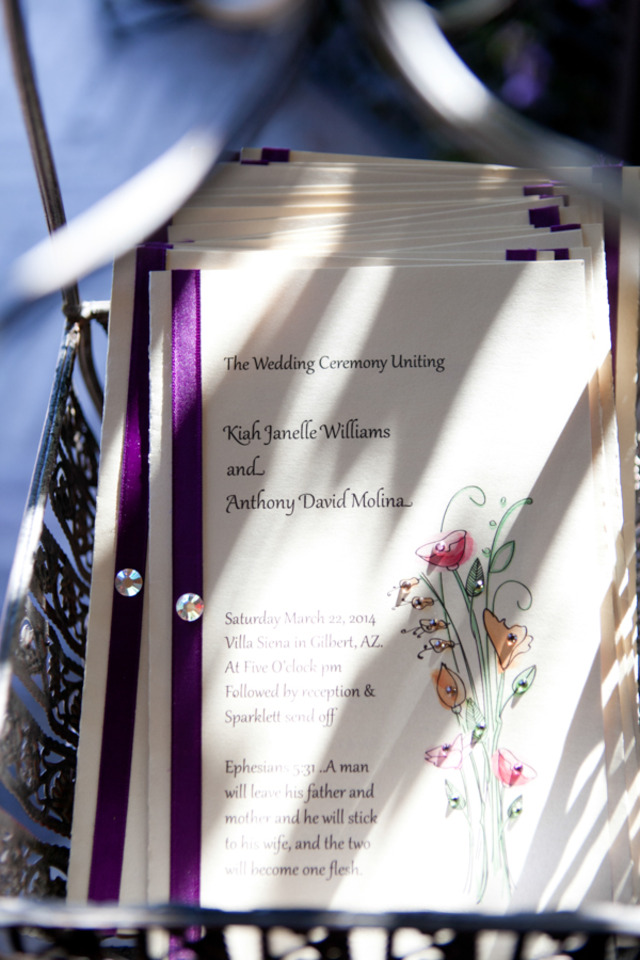 The Wedding Ceremony Uniting
Kiah Janelle Williams
and
Anthony David Molina
Saturday March 22, 2014
Villa Siena in Gilbert, AZ.
At Five O'clock pm
Followed by reception &
Sparklett send off
Ephesians 5:31 .A man
will leave his father and
mother and he will stick
to his wife, and the two
will become one flesh.